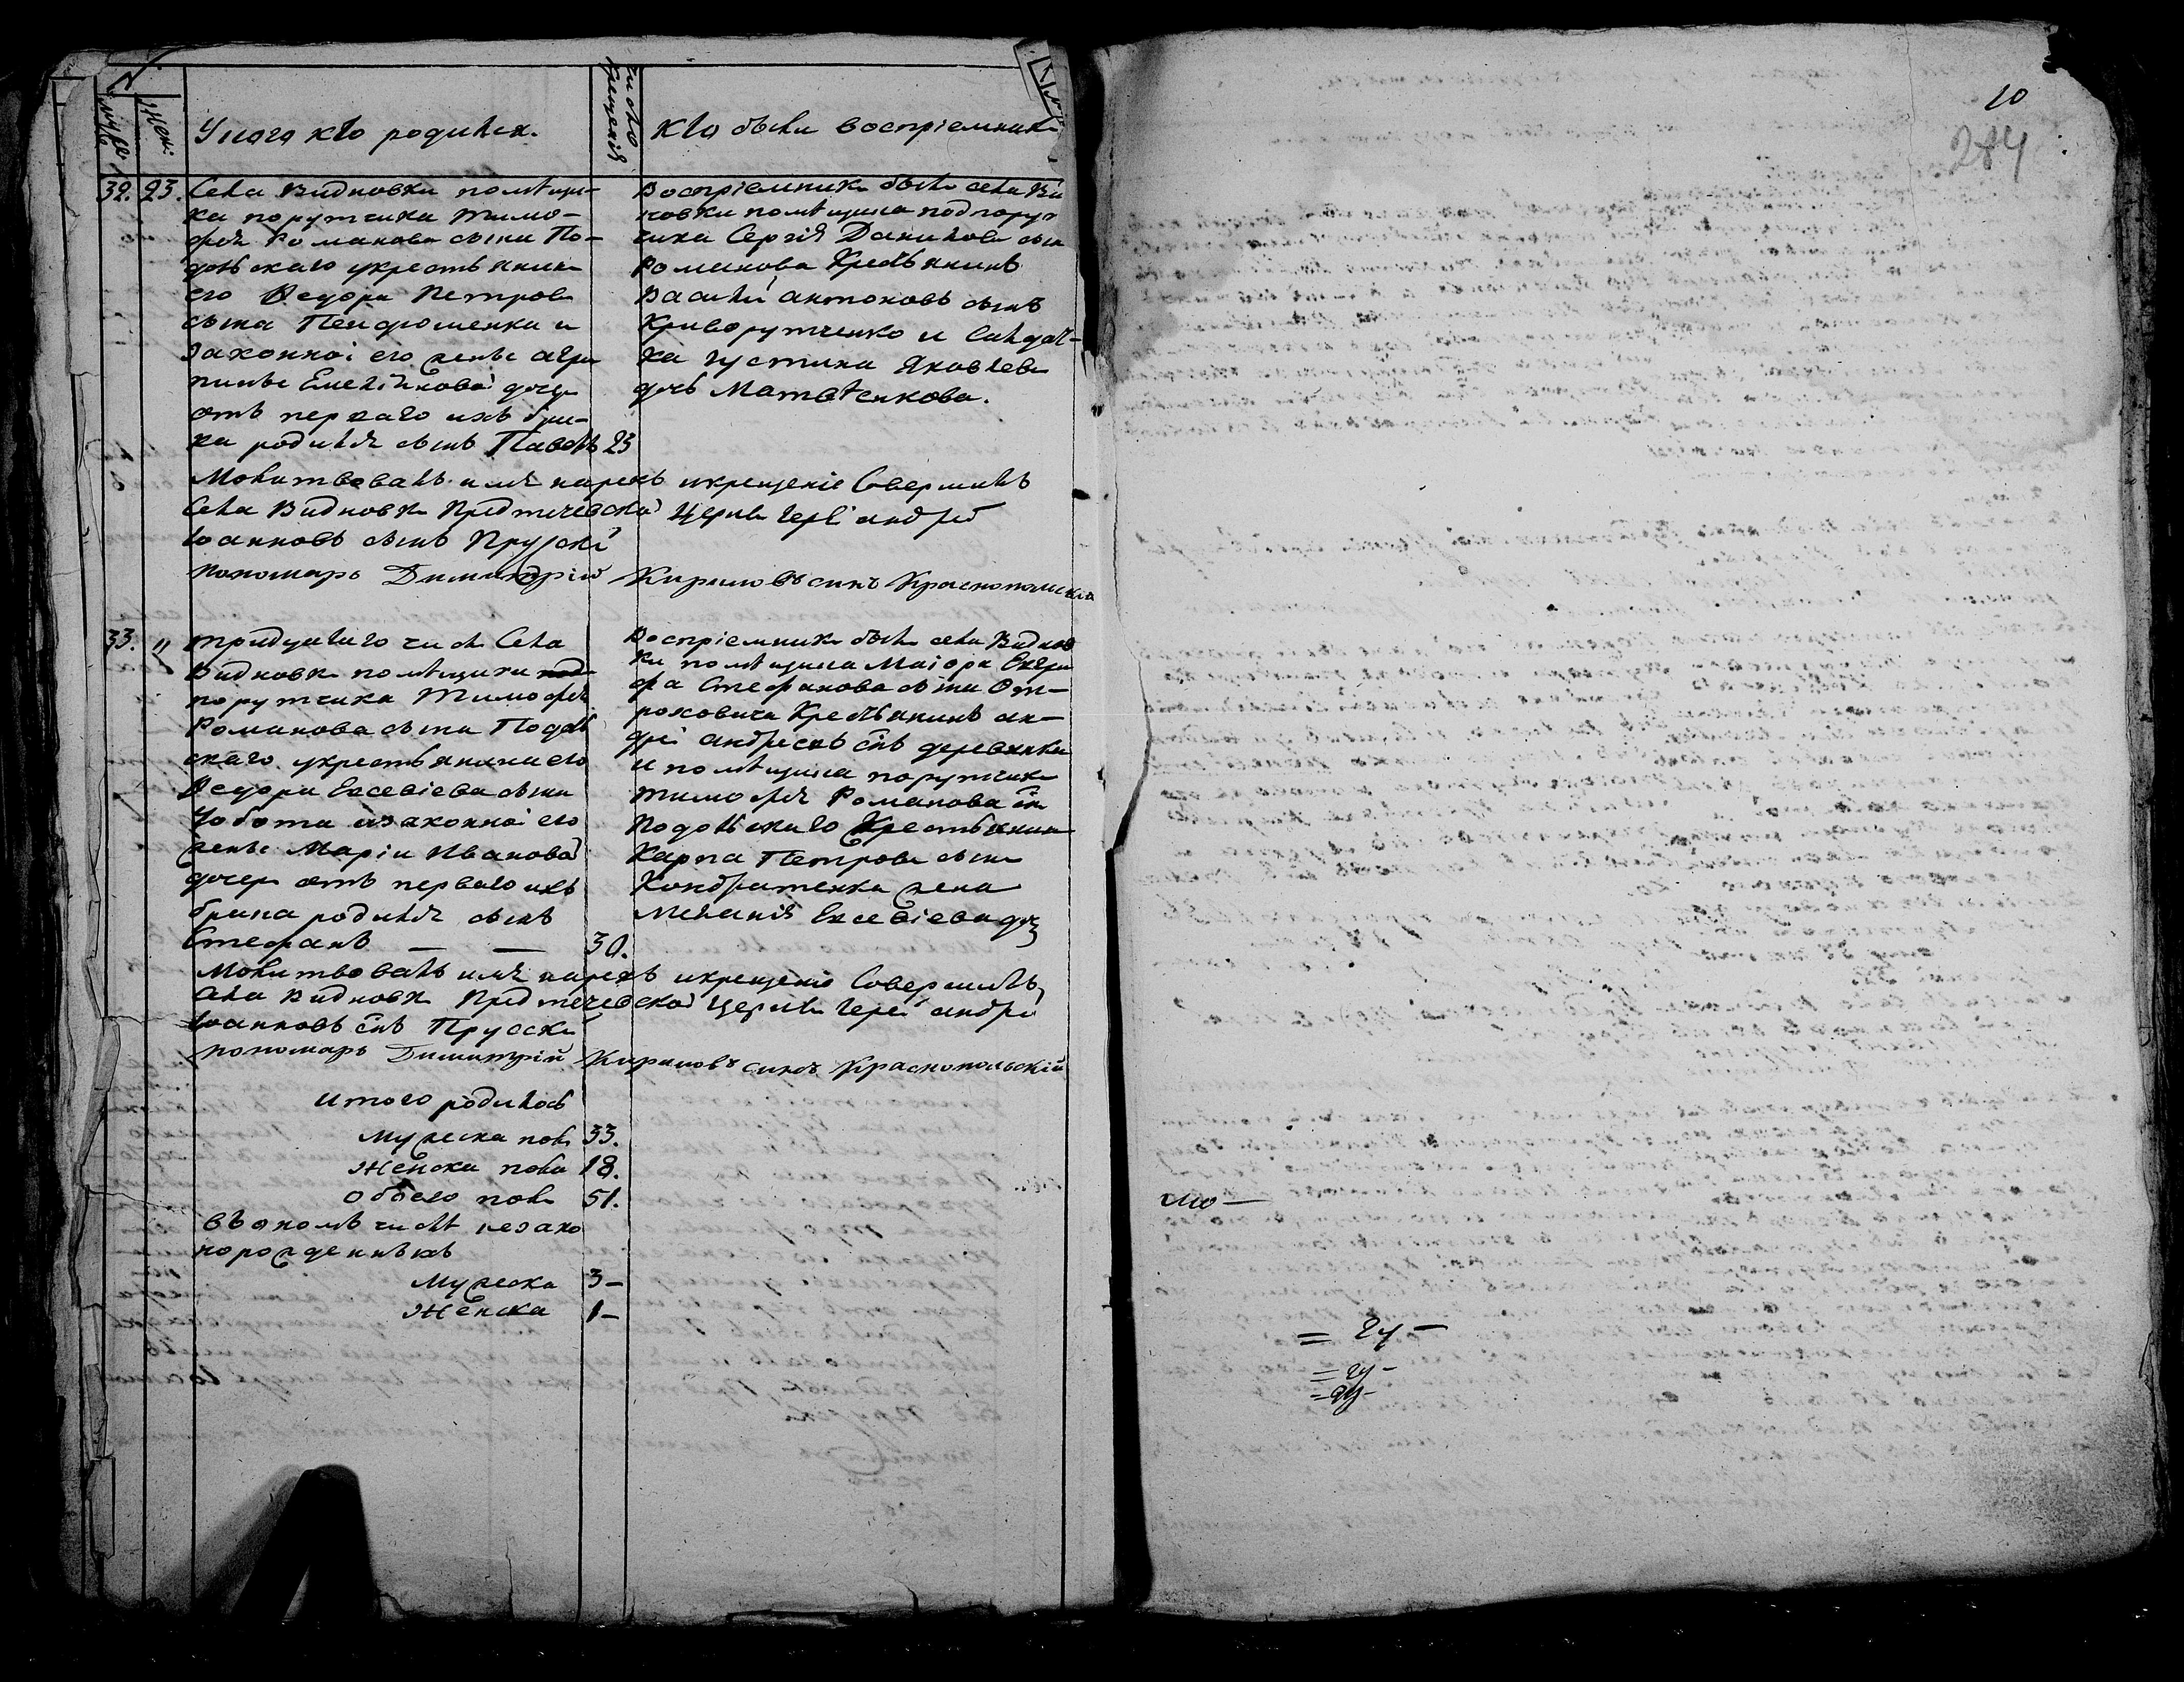 муж:
Жен:
У кого кто родился.
число крещенія
кто были воспріемники
32. 23. Села Видновки помѣщи-
ка порутчика Тимо-
фея Романова сына По-
долскаго у крестьянина
его Ѳедора Петрова
сына
законной его женѣ Агри
пинѣ дочери
отъ перваго ихъ бра-
ка родился сынъ Павелъ 23
Воспріемники были села Ви
новки помѣщика подпорут
чика Сергія Данилова сына
Романова Крестьянинъ
Василій Антоновъ сынъ
Криворутченко и Солдат-
ка Иустина Яковлева
дочь Матвѣенкова.
Молитвовалъ имя нарекъ и крещеніе Совершилъ
Села Видновки Предтечевской Церкви Іерей Андрей
Іоанновъ сынъ Прускій
пономарь Димитрій Кириловъ синъ Краснополскій
33. " тридцатаго числа Села
Видновки помѣщика
порутчика Тимофея
Романова сына Подол
скаго у крестьянина его
Ѳедора Евсевіева сына
Чобота и законной его
женѣ Маріи Ивановой
дочери отъ перваго ихъ
брака родился сынъ
Стефанъ — — 30.
Воспріемники были села Виднов
ки помѣщика Маіора Евгра
фа Стефанова сына От-
роховича Крестьянинъ Ан-
дрей Андреевъ снъ
и помѣщика порутчика
Тимофея Романова сна
Подолскаго Крестьянина
Карпа Петрова сына
Кондратенка жена
Меланія Евсевіева доч
Молитвовалъ имя нарекъ и крещеніе Совершилъ
Села Видновки Предтечевской Церкви Іерей Андрей
Іоанновъ снъ Прускій
пономарь Димитрій Кириловъ синъ Краснопольскій
Итого родилось
Мужеска пола 33.
Женска пола 18.
Обоего пола 51.
въ ономъ числѣ незако
норожденныхъ
Мужеска 3 –
Женска 1 –
10
284
мо —